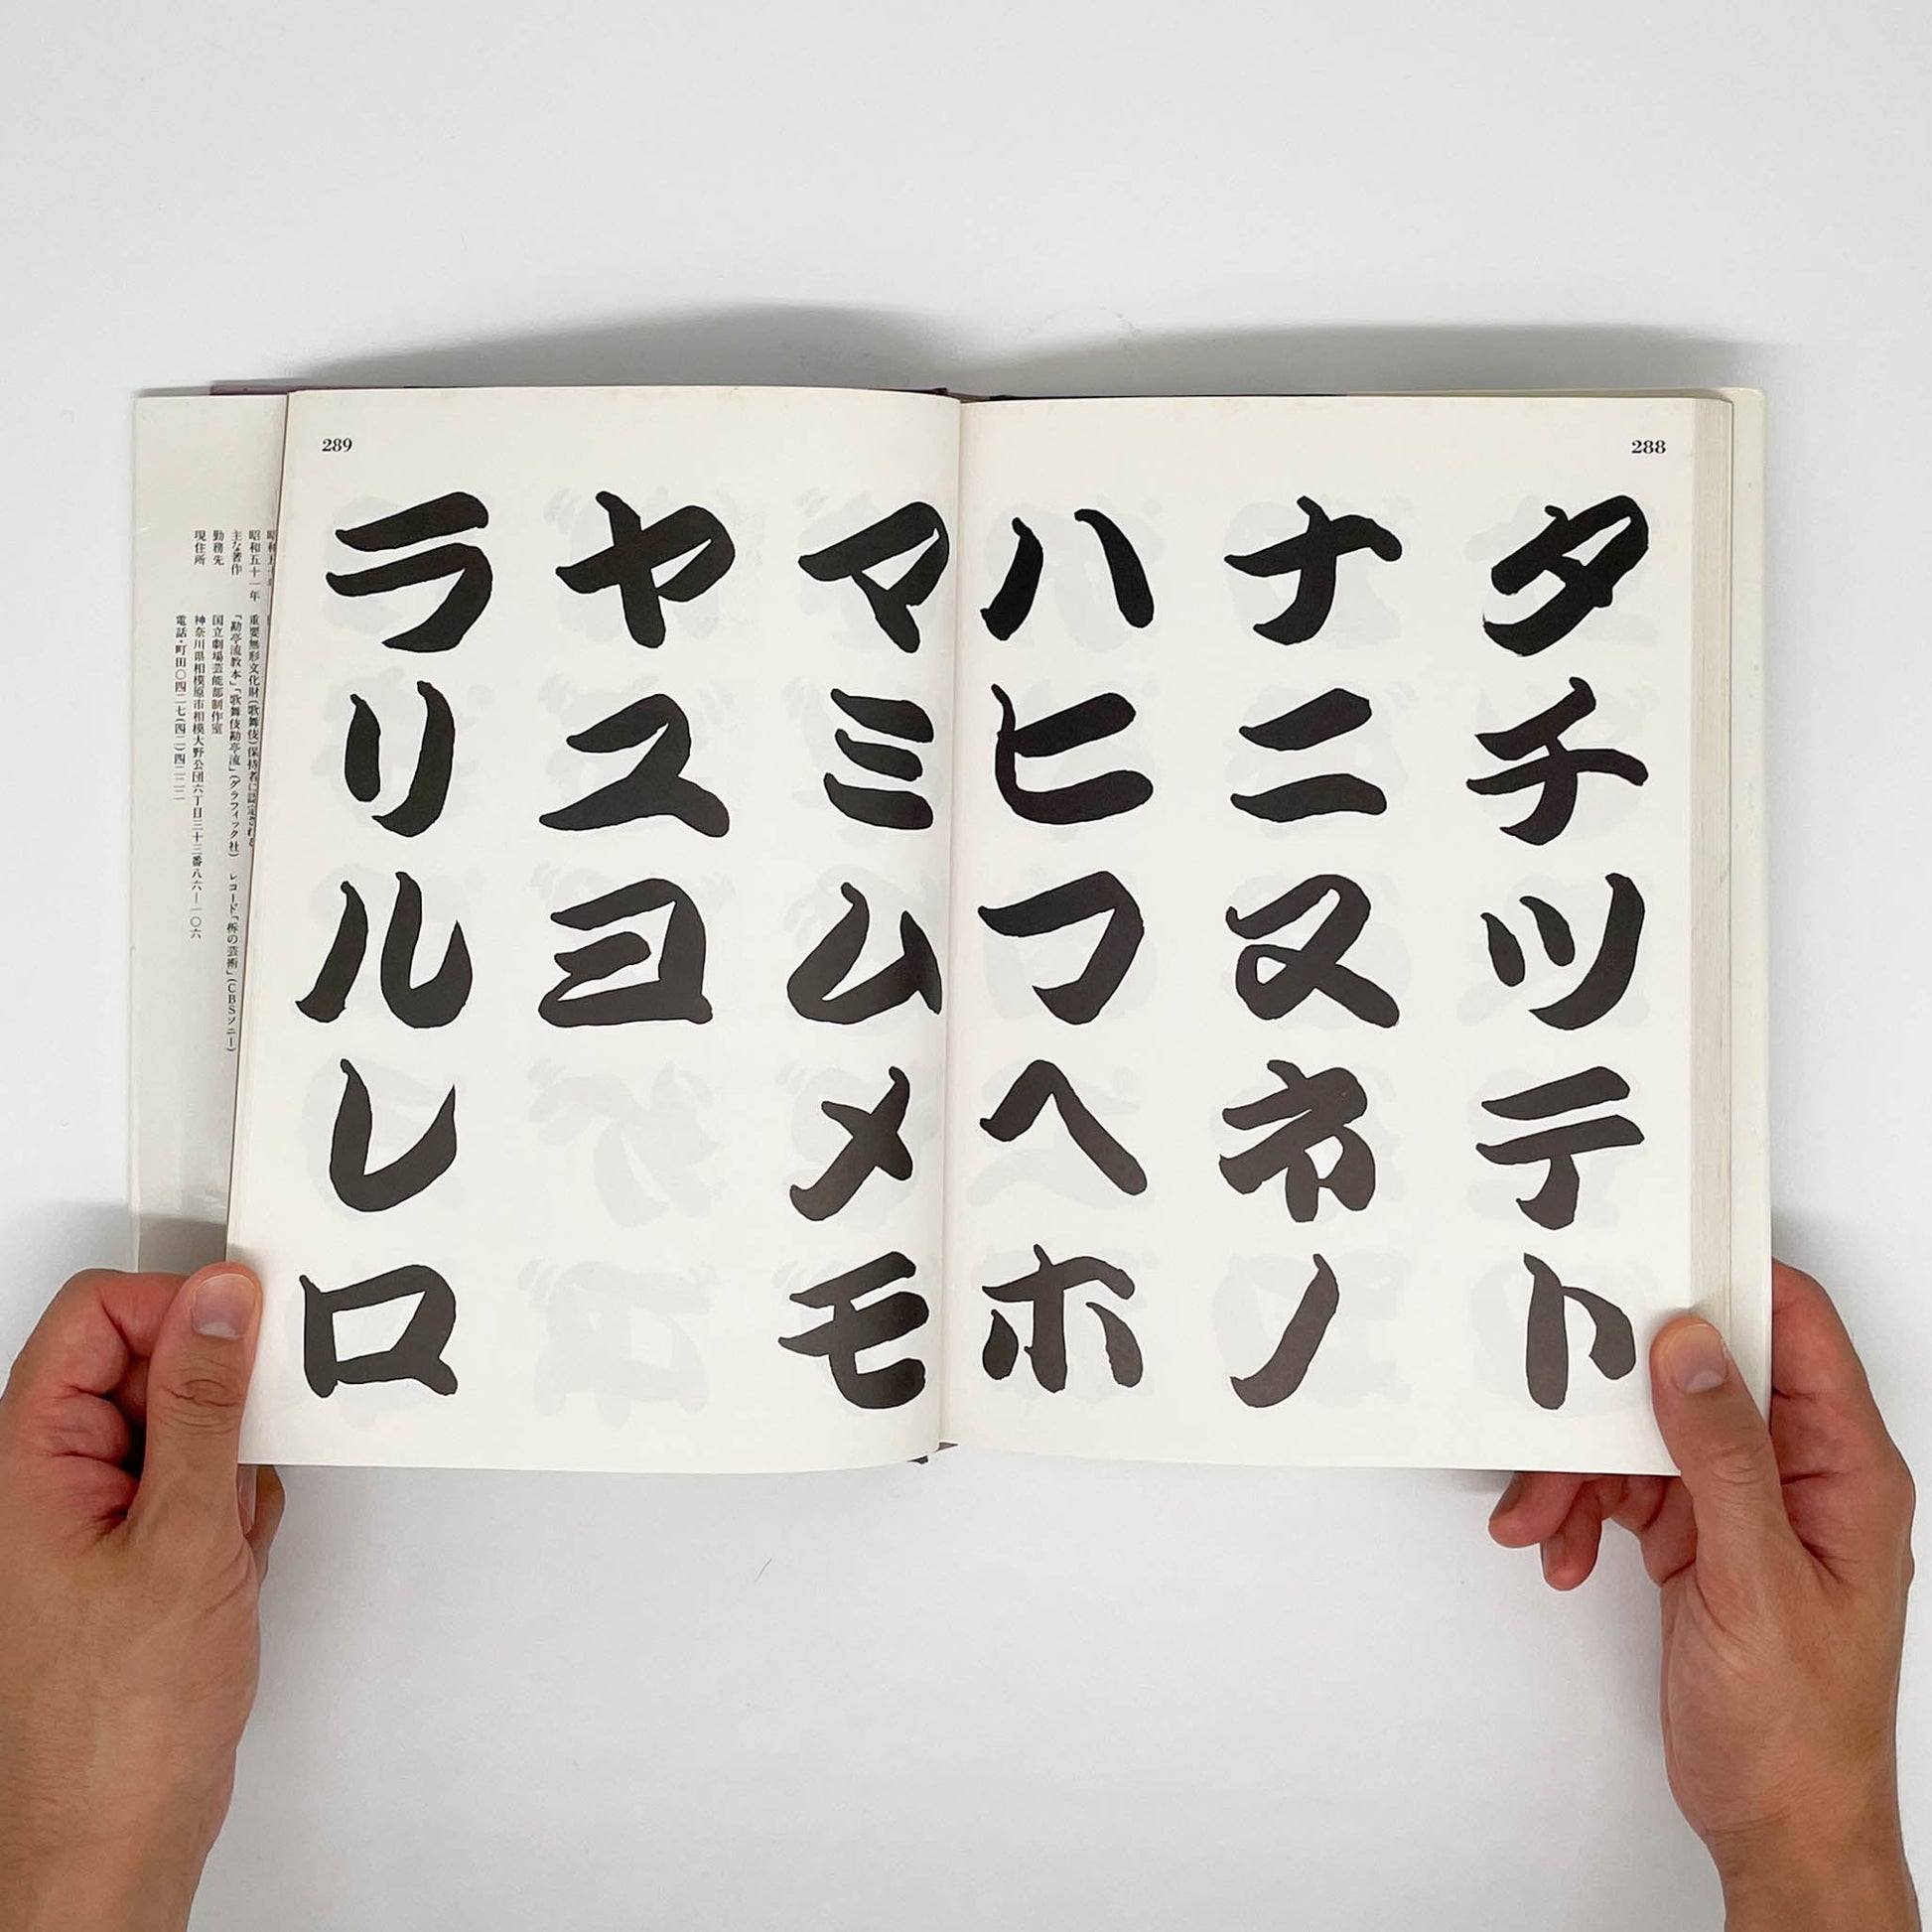 288
タチツテト
ナニヌネノ
ハヒフヘホ
289
マミムメモ
ヤユヨ
ラリルレロ
昭和五十一年 重要無形文化財(歌舞伎)保持者に認定される
主な著作 「勘亭流教本」「歌舞伎勘亭流」(グラフィック社) レコード「柝の芸術」(CBSソニー)
勤務先 国立劇場芸能部制作室
現住所 神奈川県相模原市相模大野公団六丁目三十三番八六ー一〇六
電話・町田〇四二七(四二)四二二二